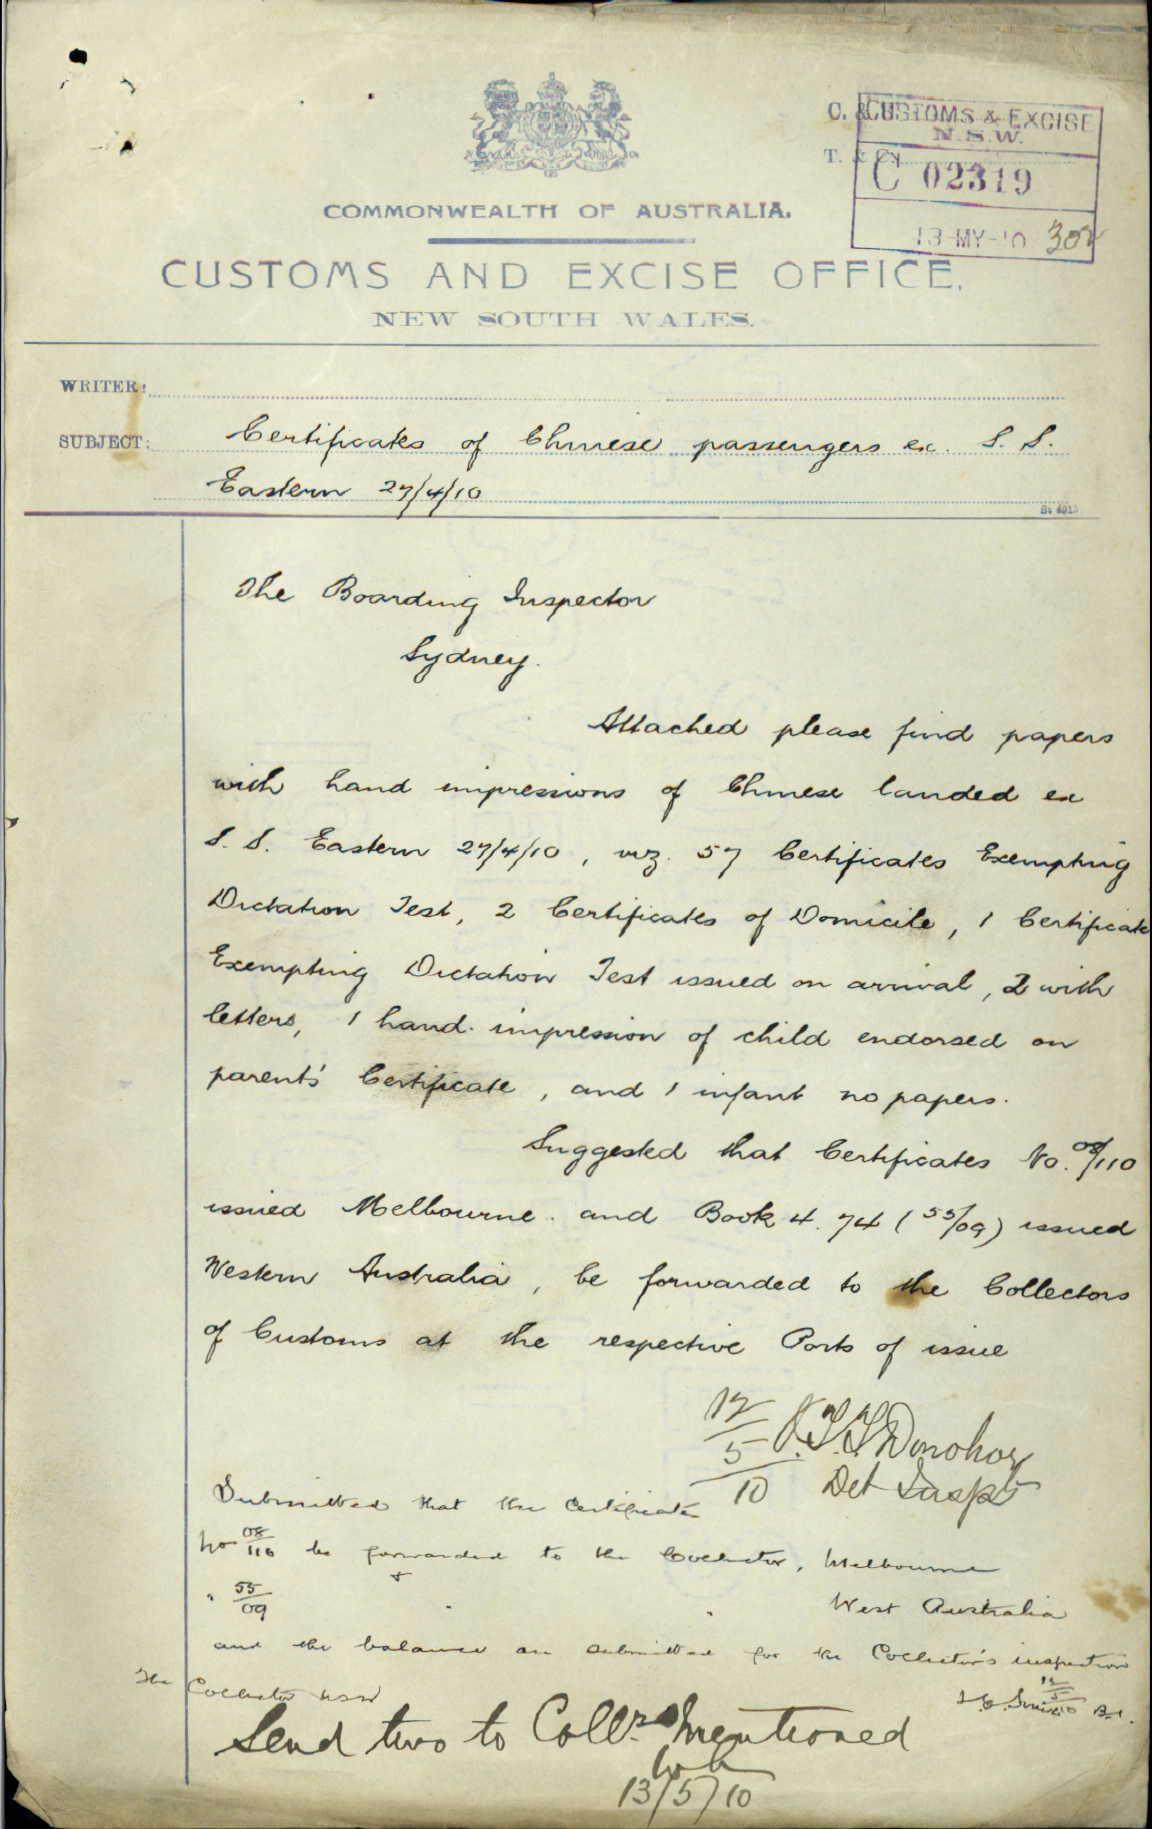 C. &
CUSTOMS & EXCISE
N.S.W.
T. & C.
C 02319
13-MY-10
COMMONWEALTH OF AUSTRALIA.
CUSTOMS AND EXCISE OFFICE.
NEW SOUTH WALES.
WRITER:
SUBJECT: Certificates of Chinese passengers ex. S. S.
Eastern 27/4/10
The Boarding Inspector
Sydney.
Attached please find papers
with hand impressions of Chinese landed ex
S. S. Eastern 27/4/10, viz. 57 Certificates Exempting
Dictation Test, 2 Certificates of Domicile, 1 Certificate
Exempting Dictation Test issued on arrival, 2 with
letters, 1 hand impression of child endorsed on
parent's Certificate, and 1 infant no papers.
Suggested that Certificates No. 08/110
issued Melbourne. and Book 4. 74 (55/09) issued
Western Australia, be forwarded to the Collectors
of Customs at the respective Ports of issue
12/5/10
Donohoe
Det Inspr
Submitted that the Certificate
No 08/110 be forwarded to the Collector, Melbourne
" 55/09 " " West Australia
and the balance are submitted for the Collector's inspection
The Collector NSW
12/5/10 B.I.
Send two to Collrs mentioned
13/5/10